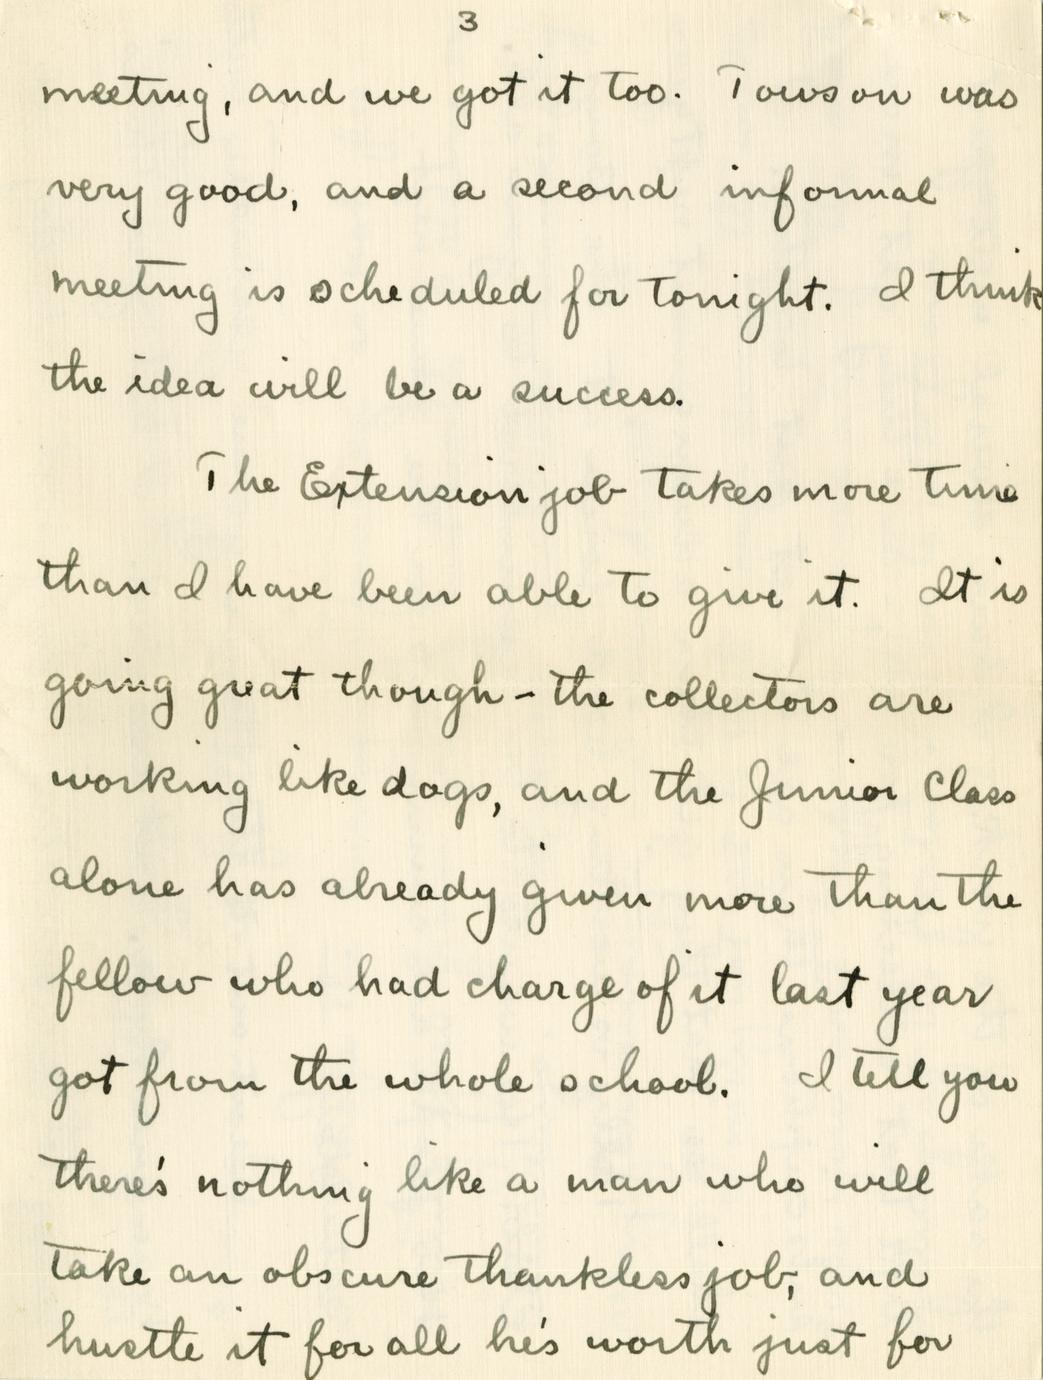 3
meeting, and we got it too. Towson was
very good, and a second informal
meeting is scheduled for tonight. I think
the idea will be a success.
The Extension job takes more time
than I have been able to give it. It is
going great though - the collectors are
working like dogs, and the Junior Class
alone has already given more than the
fellow who had charge of it last year
got from the whole school. I tell you
there's nothing like a man who will
take an obscure thankless job, and
hustle it for all he's worth just for